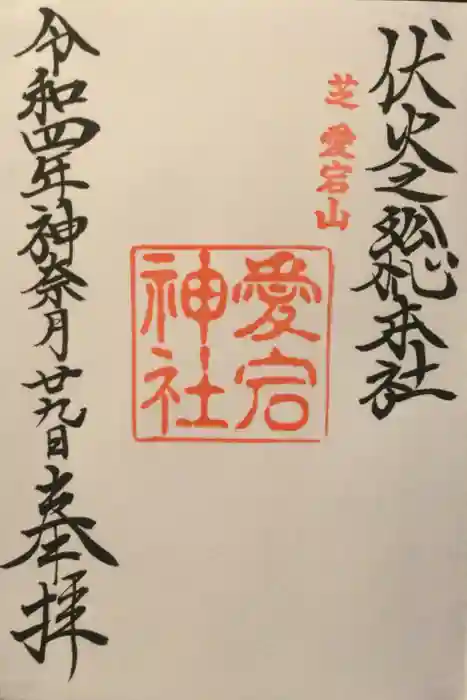 伏火之総本社
芝 愛宕山
愛宕
神社
令和四年神奈月廿九日奉拝